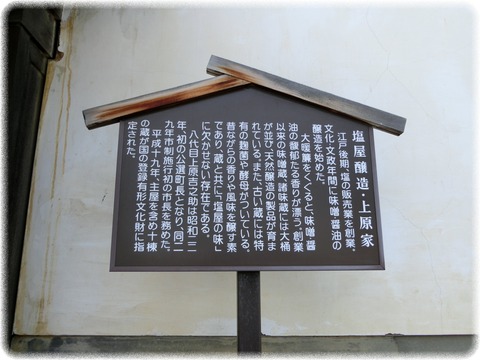 塩屋醸造・上原家
江戸後期、塩の販売業を創業。
文化・文政年間に味噌醤油の
醸造を始めた。
大暖簾をくぐると、味噌、醤
油の馥郁たる香りが漂う。創業
以来の味噌蔵、諸味蔵には大桶
が並び、天然醸造の製品が育ま
れている。また、古い蔵には特
有の麹菌や酵母がついている。
昔ながらの香りや風味を醸す素
であり、蔵と共に「塩屋の味」
に欠かせない存在である。
八代目上原吉之助は昭和二二
年、初の公選町長となり、同二
九年市制施行初の市長を務めた。
平成十九年、主屋を含め十棟
の蔵が国の登録有形文化財に指
定された。